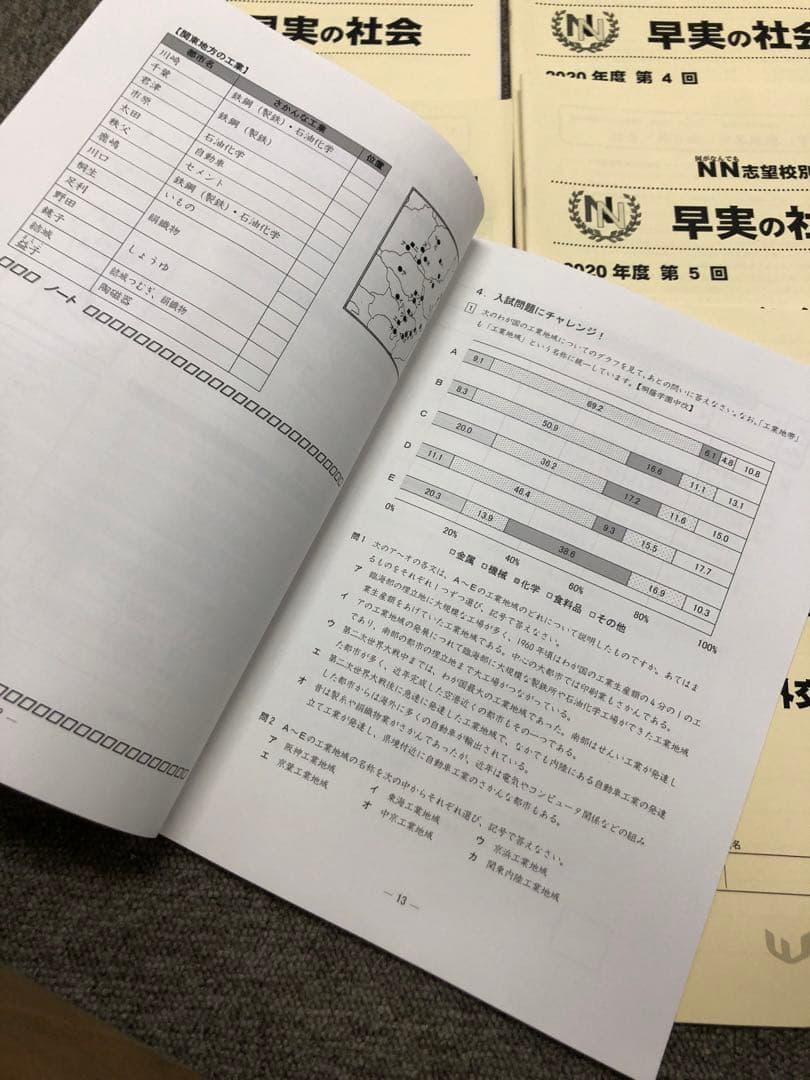 【関東地方の工業】
都市名 さかんな工業 位置
川崎 鉄鋼(製鉄)・石油化学
千葉 鉄鋼(製鉄)
君津
市原 石油化学
太田 自動車
秩父 セメント
鹿嶋 鉄鋼(製鉄)・石油化学
川口 いもの
桐生 絹織物
足利
野田 しょうゆ
銚子
結城 結城つむぎ、絹織物
益子 陶磁器
ましこ
ノート
4. 入試問題にチャレンジ!
1 次のわが国の工業地域についてのグラフを見て、あとの問いに答えなさい。なお、「工業地帯」
も「工業地域」という名称に統一しています。【桐蔭学園中改】
A 9.1 69.2 6.1 4.8 10.8
B 8.3 50.9 16.6 11.1 13.1
C 20.0 36.2 17.2 11.6 15.0
D 11.1 46.4 9.3 15.5 17.7
E 20.3 13.9 38.6 16.9 10.3
0% 20% 40% 60% 80% 100%
金属 機械 化学 食料品 その他
問1 次のア~オの各文は、A~Eの工業地域のどれについて説明したものですか。あてはま
るものをそれぞれ1つずつ選び、記号で答えなさい。
ア 臨海部の埋立地に大規模な工場が多く、1960年頃はわが国の工業生産額の4分の1の工
業生産額をあげていた工業地域である。中心の大都市では印刷業もさかんである。
イ アの工業地域の発展につれて臨海部に大規模な製鉄所や石油化学工場ができた工業地域
であり、南部の都市の埋立地まで大工場がつながっている。
ウ 第二次世界大戦中までは、わが国最大の工業地域であった。南部はせんい工業が発達し
た都市が多く、近年完成した空港近くの都市もその一つである。
エ 第二次世界大戦後に急速に発達した工業地域で、なかでも内陸にある自動車工業の発達
した都市からは海外に多くの自動車が輸出されている。
オ 昔は製糸や絹織物業がさかんであったが、近年は電気やコンピュータ関係などの組み
立て工業が発達し、県境付近に自動車工業のさかんな都市もある。
問2 A~Eの工業地域の名称を次の中からそれぞれ選び、記号で答えなさい。
ア 阪神工業地域 イ 東海工業地域 ウ 京浜工業地域
エ 京葉工業地域 オ 中京工業地域 カ 関東内陸工業地域
― 13 ―
早実の社会
早実の社会
2020年度 第4回
何がなんでも
NN志望校別
早実の社会
2020年度 第5回
名